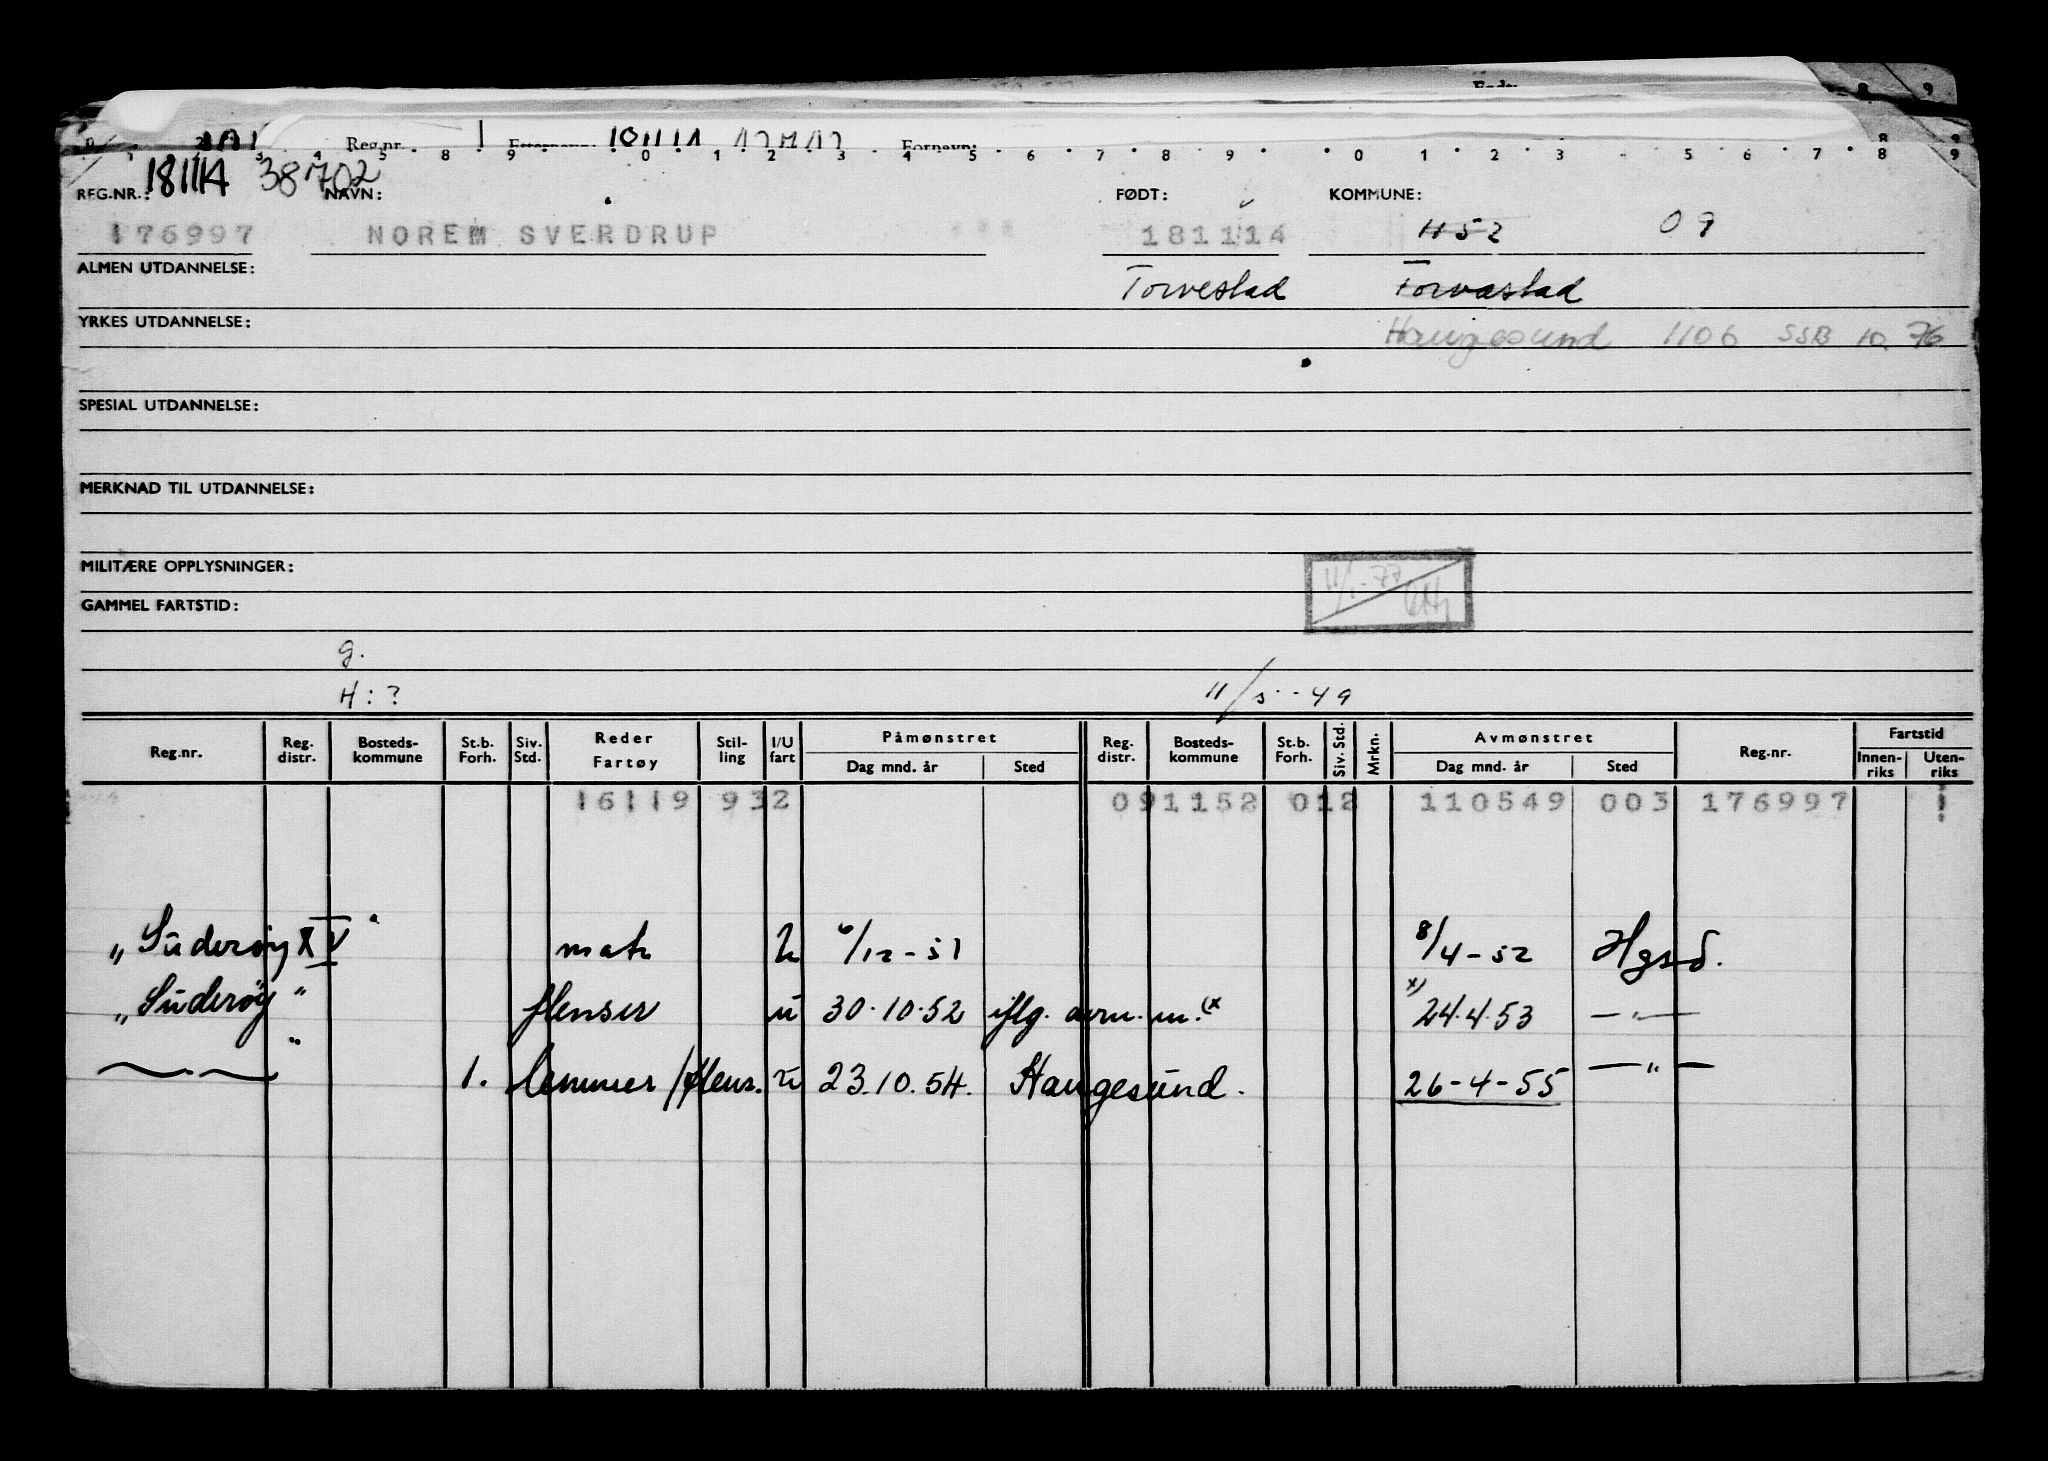 Født:
8 9
Reg.nr. Etternavn: 181114 Fornavn: 8 9
1 3 4 5 8 9 0 1 2 3 4 5 6 7 8 9 0 1 2 3 5 6 7 8 9
181114 38702
REG.NR.: NAVN: FØDT: KOMMUNE:
176997 NOREM SVERDRUP 181114 1152 09
ALMEN UTDANNELSE: Torvestad Torvastad
YRKES UTDANNELSE: Haugesund 1106 SSB 10. 76
SPESIAL UTDANNELSE:
MERKNAD TIL UTDANNELSE:
MILITÆRE OPPLYSNINGER: 11/1-77
GAMMEL FARTSTID:
g.
H: ? 11/5--49
Reg.nr. Reg. distr. Bosteds-kommune St.b. Forh. Siv. Std. Reder Fartøy Stil-ling I/U fart Påmønstret Dag mnd. år Sted Reg. distr. Bosteds-kommune St.b. Forh. Siv. Std. Mrkn. Avmønstret Dag mnd. år Sted Reg.nr. Fartstid Innen-riks Uten-riks
16119 932 091152 012 110549 003 176997
„Suderøy XV" matr u 6/12-51 8/4-52 Hgsd.
„Suderøy" flenser u 30.10.52 iflg. avm. m. (x x) 24.4.53 —"—
—"— 1. lemmer/flens. u 23.10.54. Haugesund. 26-4-55 —"—